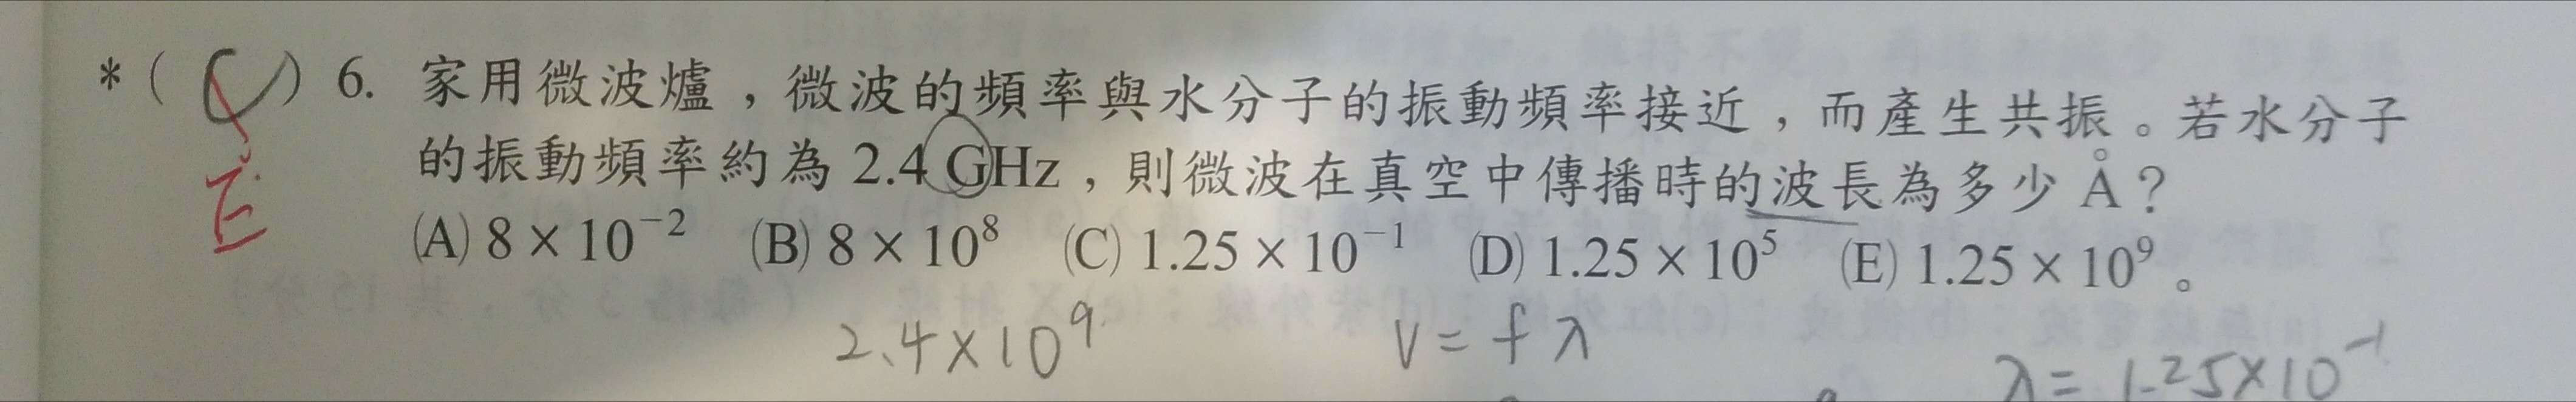 *( C ) 6. 家用微波爐，微波的頻率與水分子的振動頻率接近，而產生共振。若水分子
E
的振動頻率約為 2.4 GHz，則微波在真空中傳播時的波長為多少 Å？
(A) 8 × 10⁻² (B) 8 × 10⁸ (C) 1.25 × 10⁻¹ (D) 1.25 × 10⁵ (E) 1.25 × 10⁹。
2.4×10⁹ v = fλ
λ = 1.25×10⁻¹